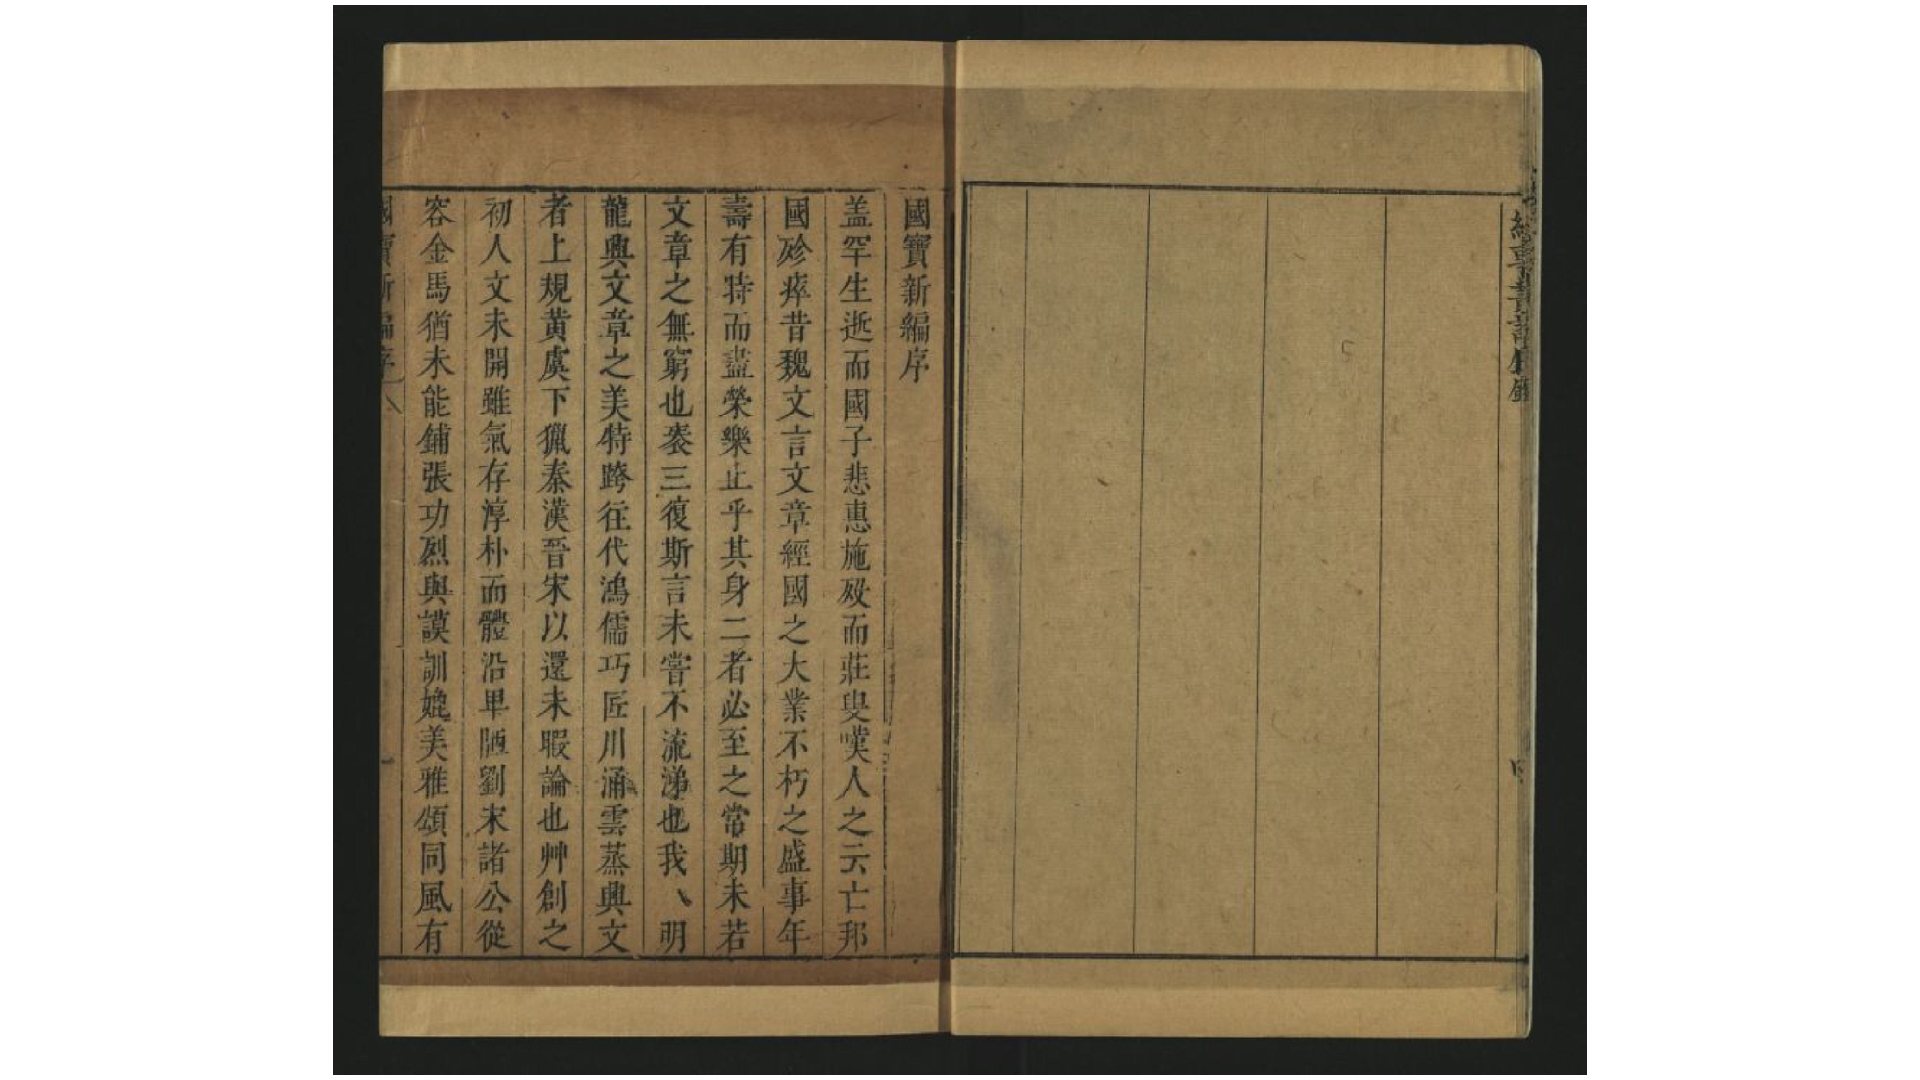 國寶新編序
盖罕生逝而國子悲惠施歿而莊叟嘆人之云亡邦
國殄瘁昔魏文言文章經國之大業不朽之盛事年
壽有時而盡榮樂止乎其身二者必至之常期未若
文章之無窮也袠三復斯言未嘗不流涕也我 明
龍興文章之美特跨往代鴻儒巧匠川涌雲蒸興文
者上規黃虞下獵秦漢晉宋以還未暇論也艸創之
初人文未開雖氣存淳朴而體沿卑陋劉宋諸公從
容金馬猶未能鋪張功烈與謨訓媲美雅頌同風有
國寶新編序